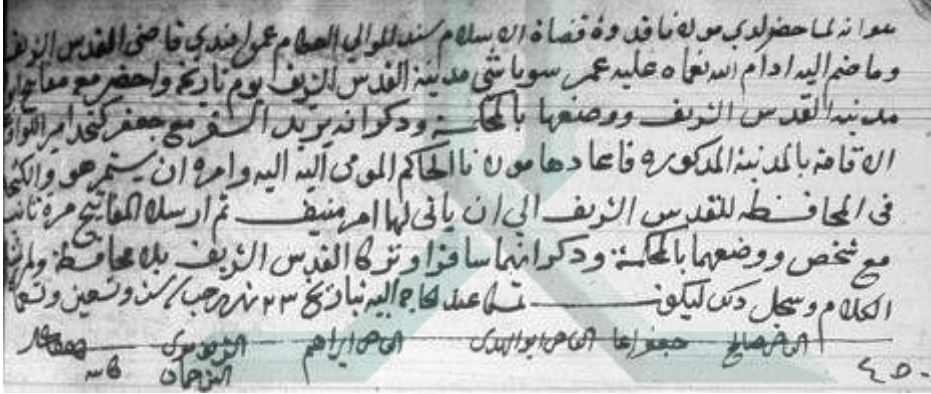 هو انه لما حضر لدي مولانا قدوة قضاة الاسلام سند الموالي العظام عمر افندي قاضي القدس الشريف
وما ضم اليه ادام الله نعماه عليه عمر سوباشي مدينة القدس الشريف يوم تاريخه واحضر معه مفاتيح
مدينة القدس الشريف ووضعها بالمحكمة وذكر انه يريد السفر مع جعفر كتخدا مير اللوا
الاقامة بالمدينة المذكورة فاعادها مولانا الحاكم المومى اليه اليه وامره ان يستمر هو والكتخدا
في المحافظه للقدس الشريف الى ان ياتي لها امر منيف ثم ارسلا المفاتيح مرة ثانية
مع شخص ووضعهما بالمحكمة وذكر انهما سافرا وتركا القدس الشريف بلا محافظة ولم
الكلام وسجل ذلك ليكون عند الحاجه اليه بتاريخ ٢٣ شهر رجب سنة وتسعين وتسعماية
القاضي صالح جعفر اغا القاضي ابو الهدى القاضي ابراهيم الشريف موسى
الترجمان
٤٥٠